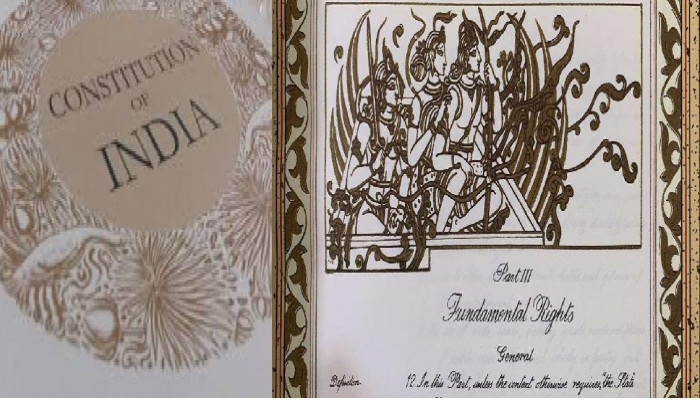 CONSTITUTION
OF
INDIA
Part III
Fundamental Rights
General
Definition. 12. In this Part, unless the context otherwise requires, "the State